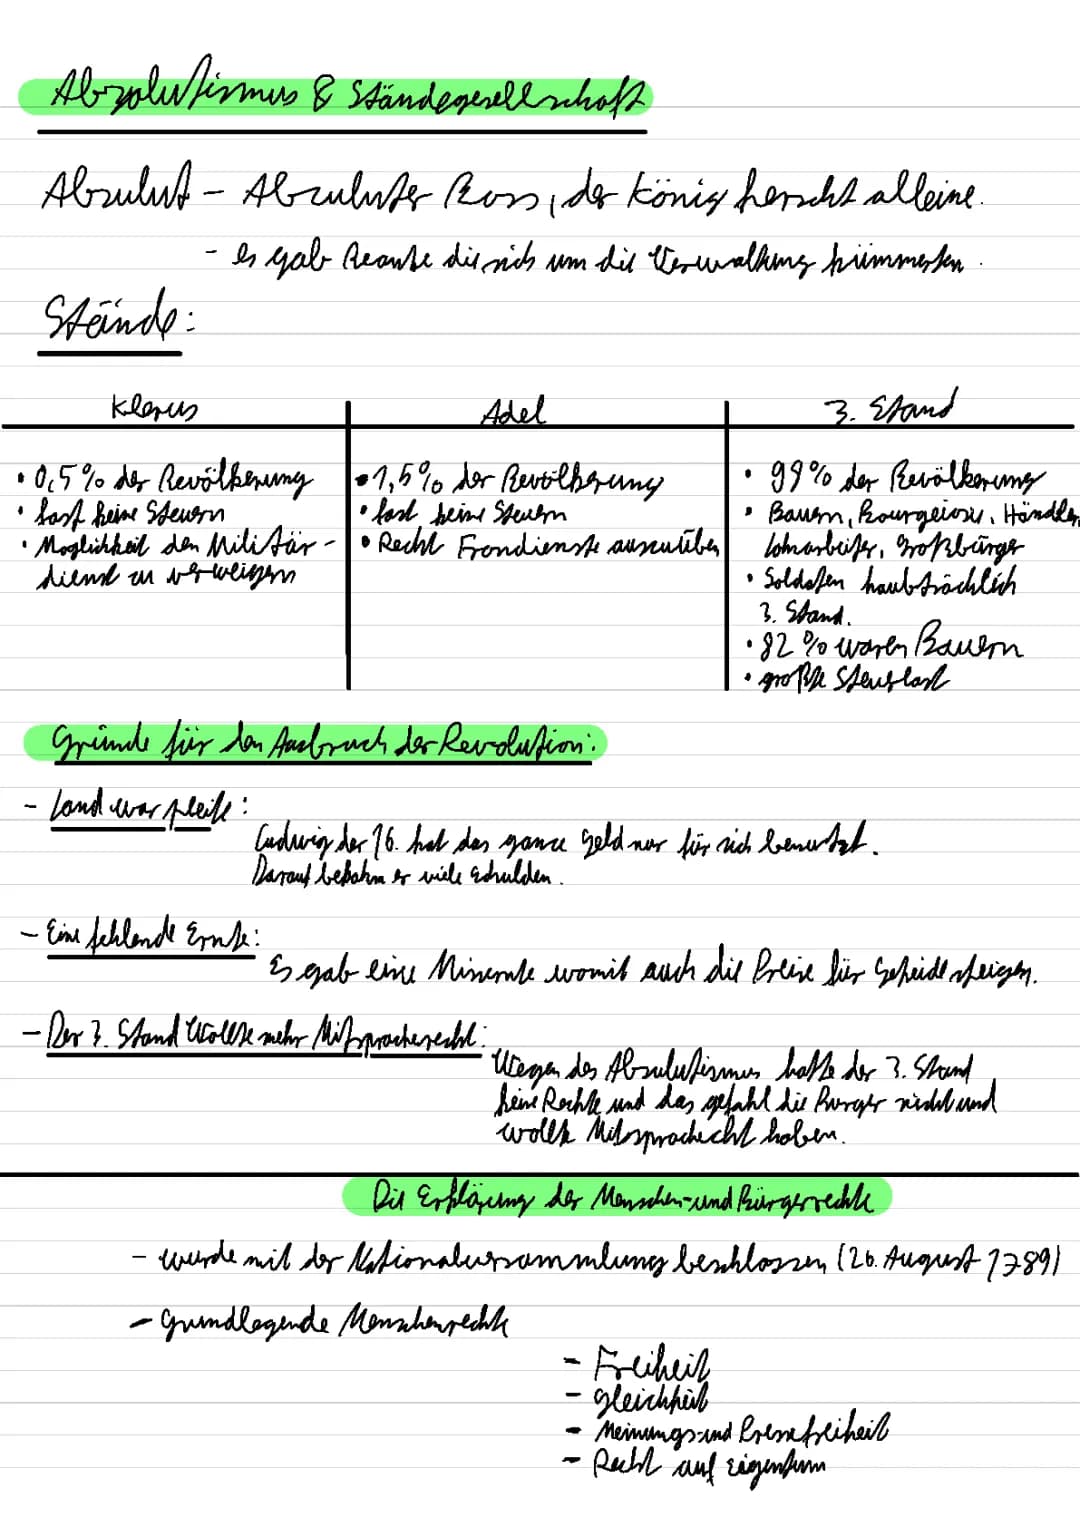 Absolutismus & Ständegesellschaft
Absolut - Absoluter Boss, der König herscht alleine.
- es gab Beamte die sich um die Verwaltung kümmerten.
Stände:
Klerus
Adel
3. Stand
• 0,5% der Bevölkerung
• fast keine Steuern
• Moglichkeit den Militär-
dienst zu verweigern
• 1,5% der Bevölkerung
• fast keine Steuern
• Recht Frondienste auszuüben
• 99% der Bevölkerung
• Bauern, Bourgeiosie, Händler
Lohnarbeiter, Großbürger
• Soldaten haubträchlich
3. Stand.
• 82% waren Bauern
• große Steuerlast
Gründe für den Ausbruch der Revolution:
- Land war pleite:
Ludwig der 16. hat das ganze Geld nur für sich benutzt.
Darauf bekahm er viele Schulden.
- Eine fehlende Ernte:
Es gab eine Misernte womit auch die Preise für Geteide steigen.
- Der 3. Stand wollte mehr Mitspracherecht:
Wegen des Absolutismus hatte der 3. Stand
keine Rechte und das gefahl die Burger nicht und
wollte Mitsprachecht haben.
Die Erklärung der Menschen- und Bürgerrechte
- wurde mit der Nationalversammlung beschlossen (26. August 1789)
- grundlegende Menschenrechte
- Freiheit
- gleichheit
- Meinungs-und Pressefreiheit
- Recht auf Eigentum